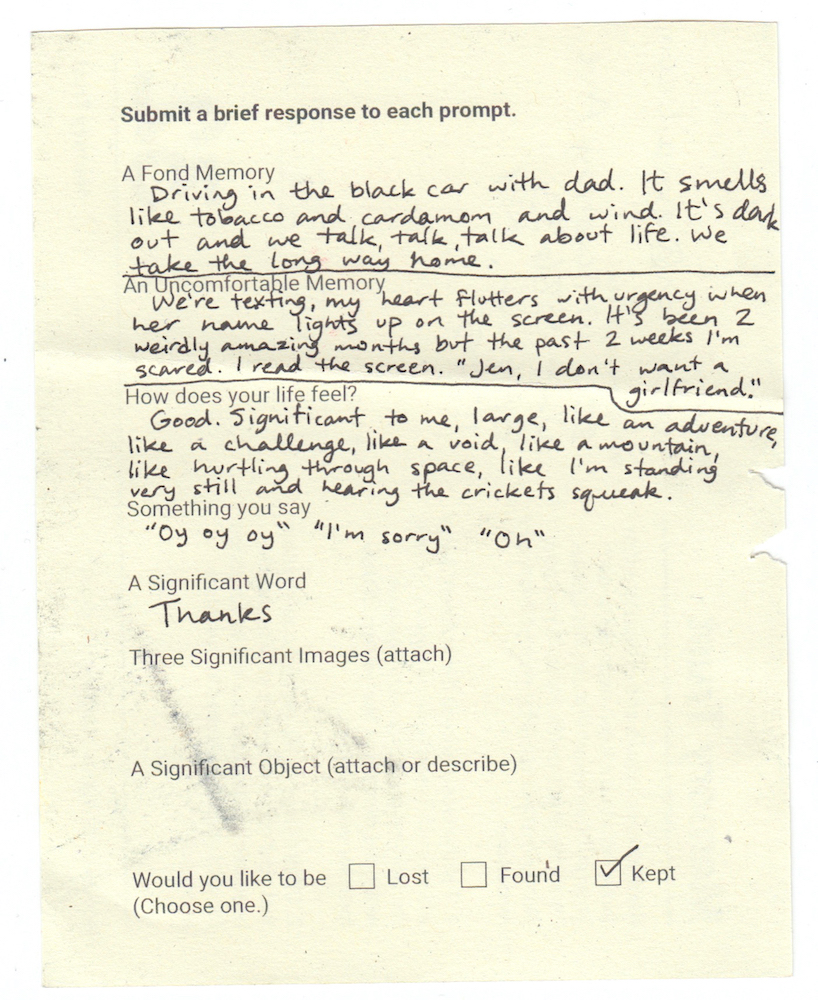 Submit a brief response to each prompt.
A Fond Memory
Driving in the black car with dad. It smells
like tobacco and cardamom and wind. It's dark
out and we talk, talk, talk about life. We
take the long way home.
An Uncomfortable Memory
We're texting, my heart flutters with urgency when
her name lights up on the screen. It's been 2
weirdly amazing months but the past 2 weeks I'm
scared. I read the screen. "Jen, I don't want a
girlfriend."
How does your life feel?
Good. Significant to me, large, like an adventure,
like a challenge, like a void, like a mountain,
like hurtling through space, like I'm standing
very still and hearing the crickets squeak.
Something you say
"Oy oy oy" "I'm sorry" "Oh"
A Significant Word
Thanks
Three Significant Images (attach)
A Significant Object (attach or describe)
Would you like to be Lost Found Kept
(Choose one.)